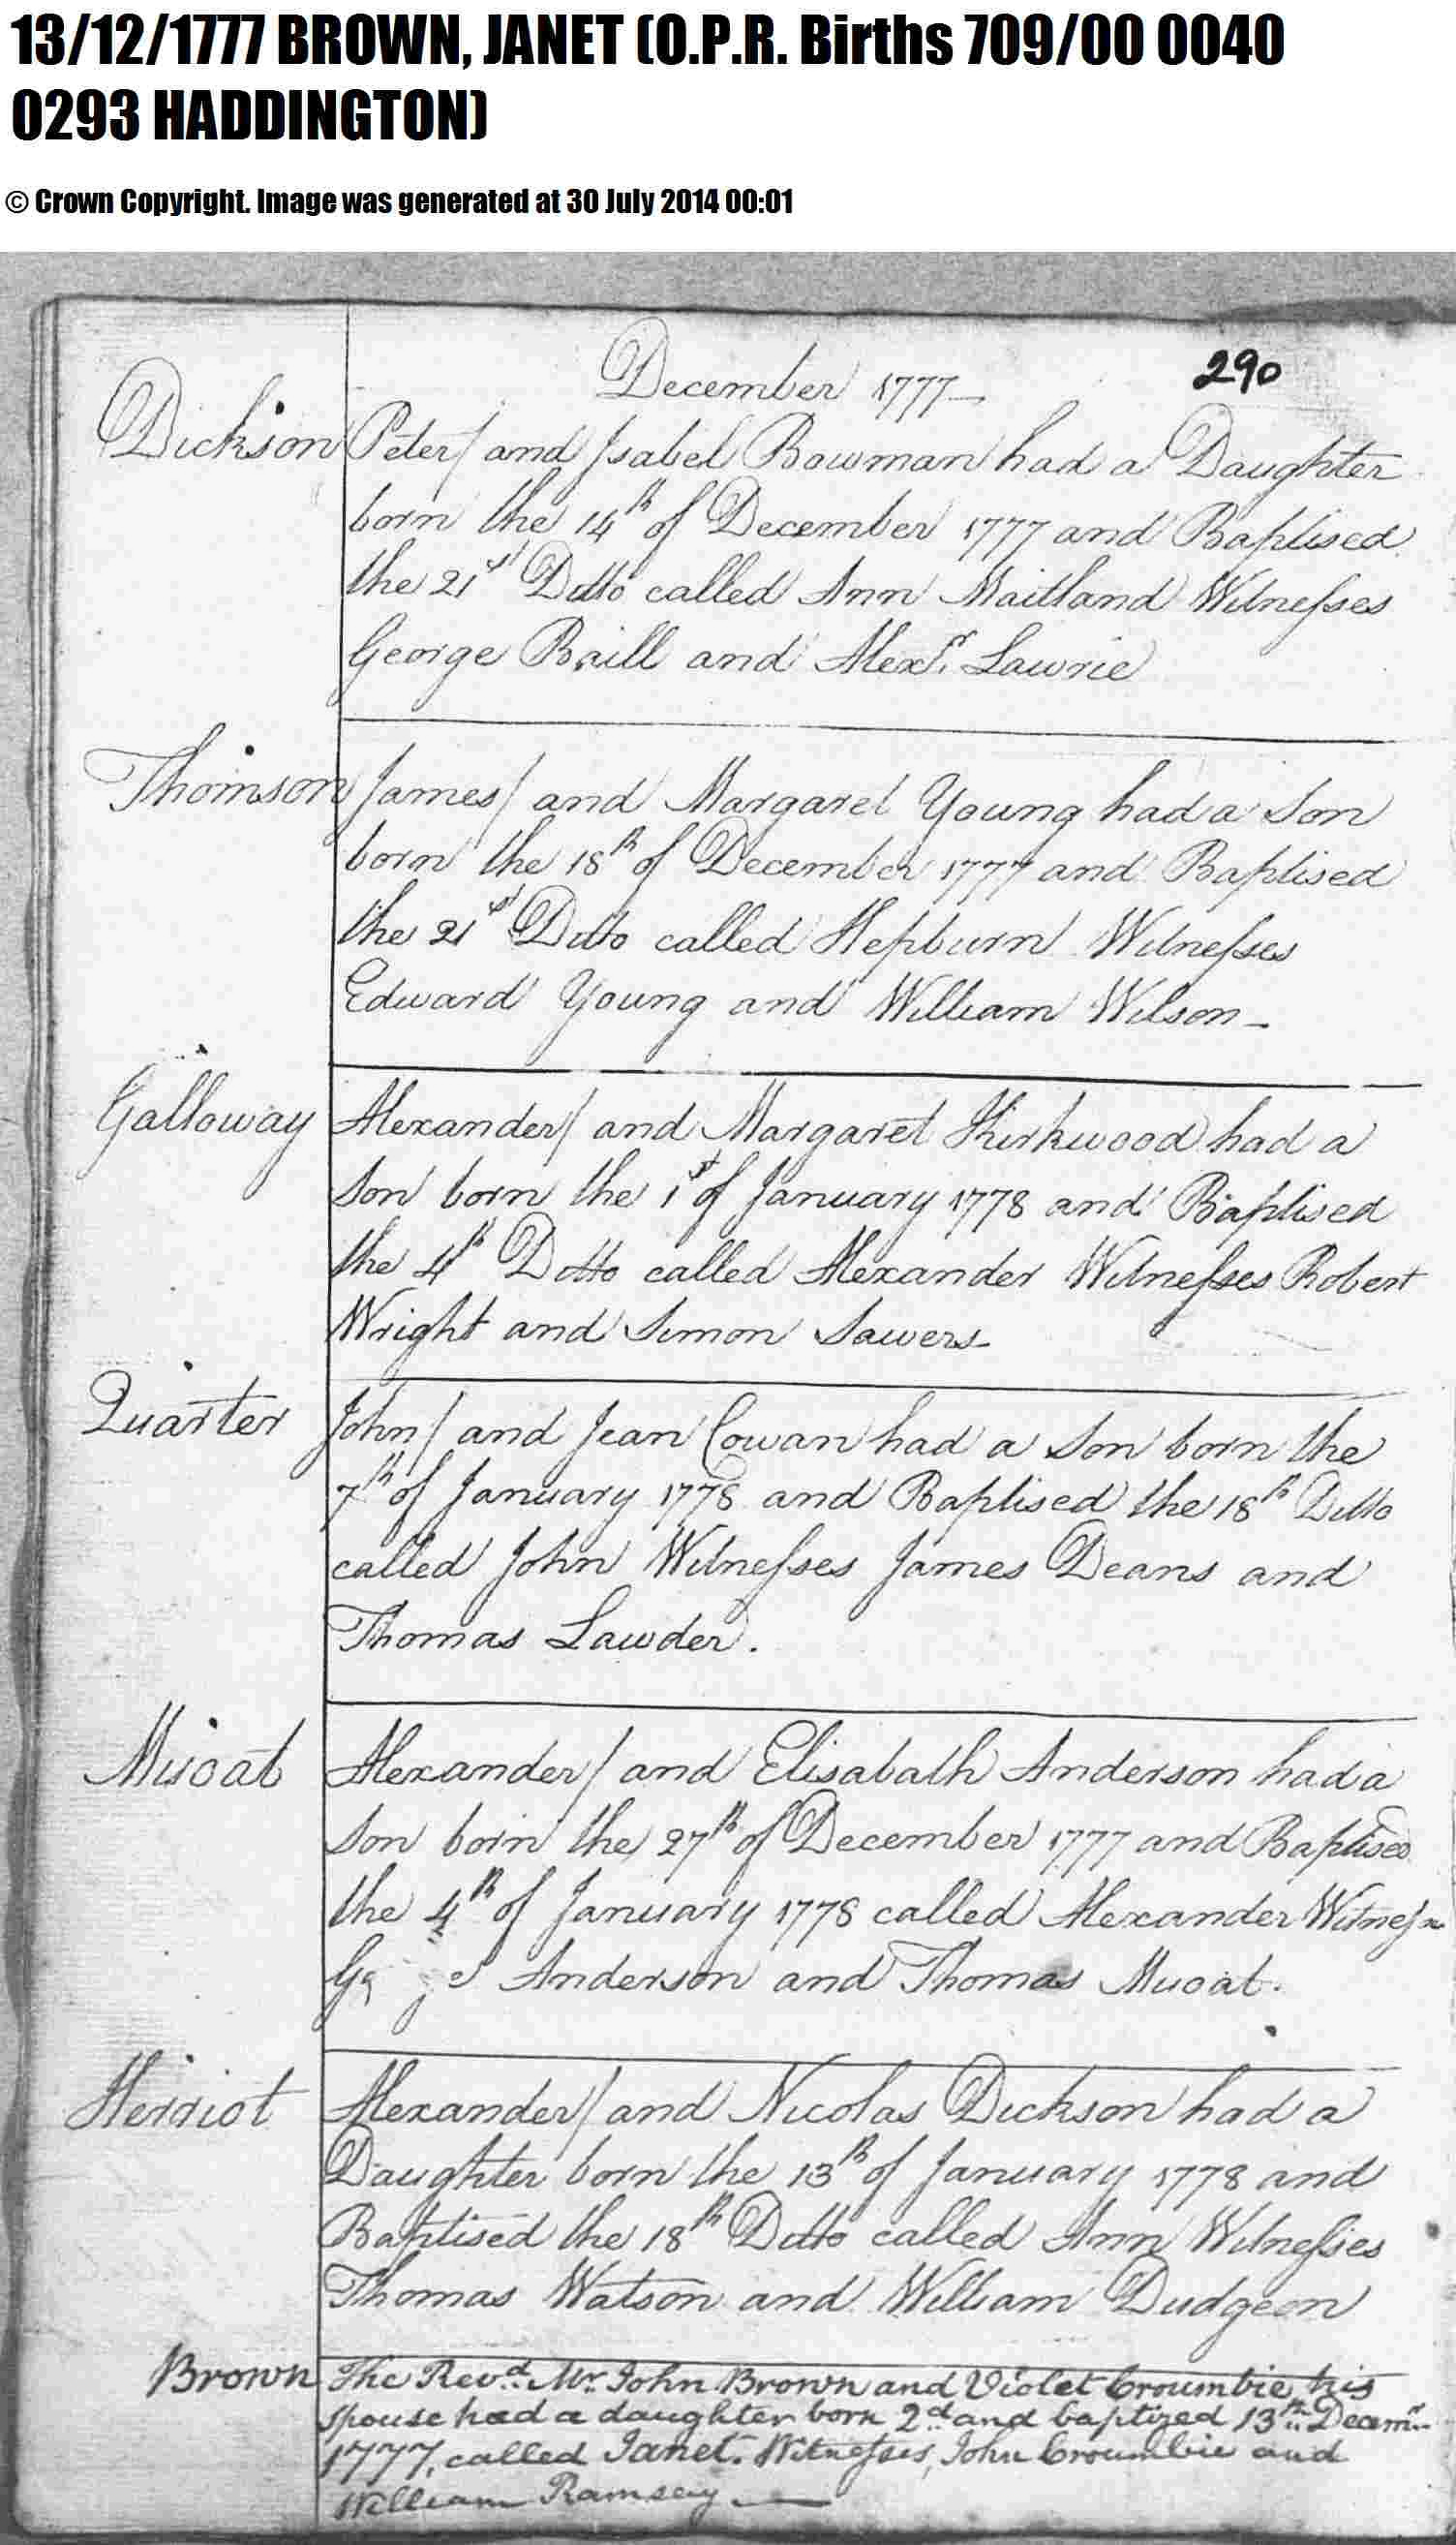 13/12/1777 BROWN, JANET (O.P.R. Births 709/00 0040
0293 HADDINGTON)
© Crown Copyright. Image was generated at 30 July 2014 00:01
December 1777 290
Dickson Peter/ and Isabel Bowman had a Daughter
born the 14th of December 1777 and Baptised
the 21st Ditto called Ann Maitland Witnesses
George Braill and Alexr. Lawrie
Thomson James/ and Margaret Young had a Son
born the 18th of December 1777 and Baptised
the 21st Ditto called Hepburn Witnesses
Edward Young and William Wilson
Galloway Alexander/ and Margaret Kirkwood had a
Son born the 1st of January 1778 and Baptised
the 4th Ditto called Alexander Witnesses Robert
Wright and Simon Sawers
Quarter John/ and Jean Cowan had a Son born the
7th of January 1778 and Baptised the 18th Ditto
called John Witnesses James Deans and
Thomas Lawder.
Muoat Alexander/ and Elisabath Anderson had a
Son born the 27th of December 1777 and Baptised
the 4th of January 1778 called Alexander
Anderson and Thomas Muoat.
Herriot Alexander/ and Nicolas Dickson had a
Daughter born the 13th of January 1778 and
Baptised the 18th Ditto called Ann Witnesses
Thomas Watson and William Dudgeon
Brown The Revd. Mr. John Brown and Violet Croumbie his
spouse had a daughter born 2d. and baptized 13th Decemr.
1777, called Janet. Witnesses, John Croumbie and
William Ramsay